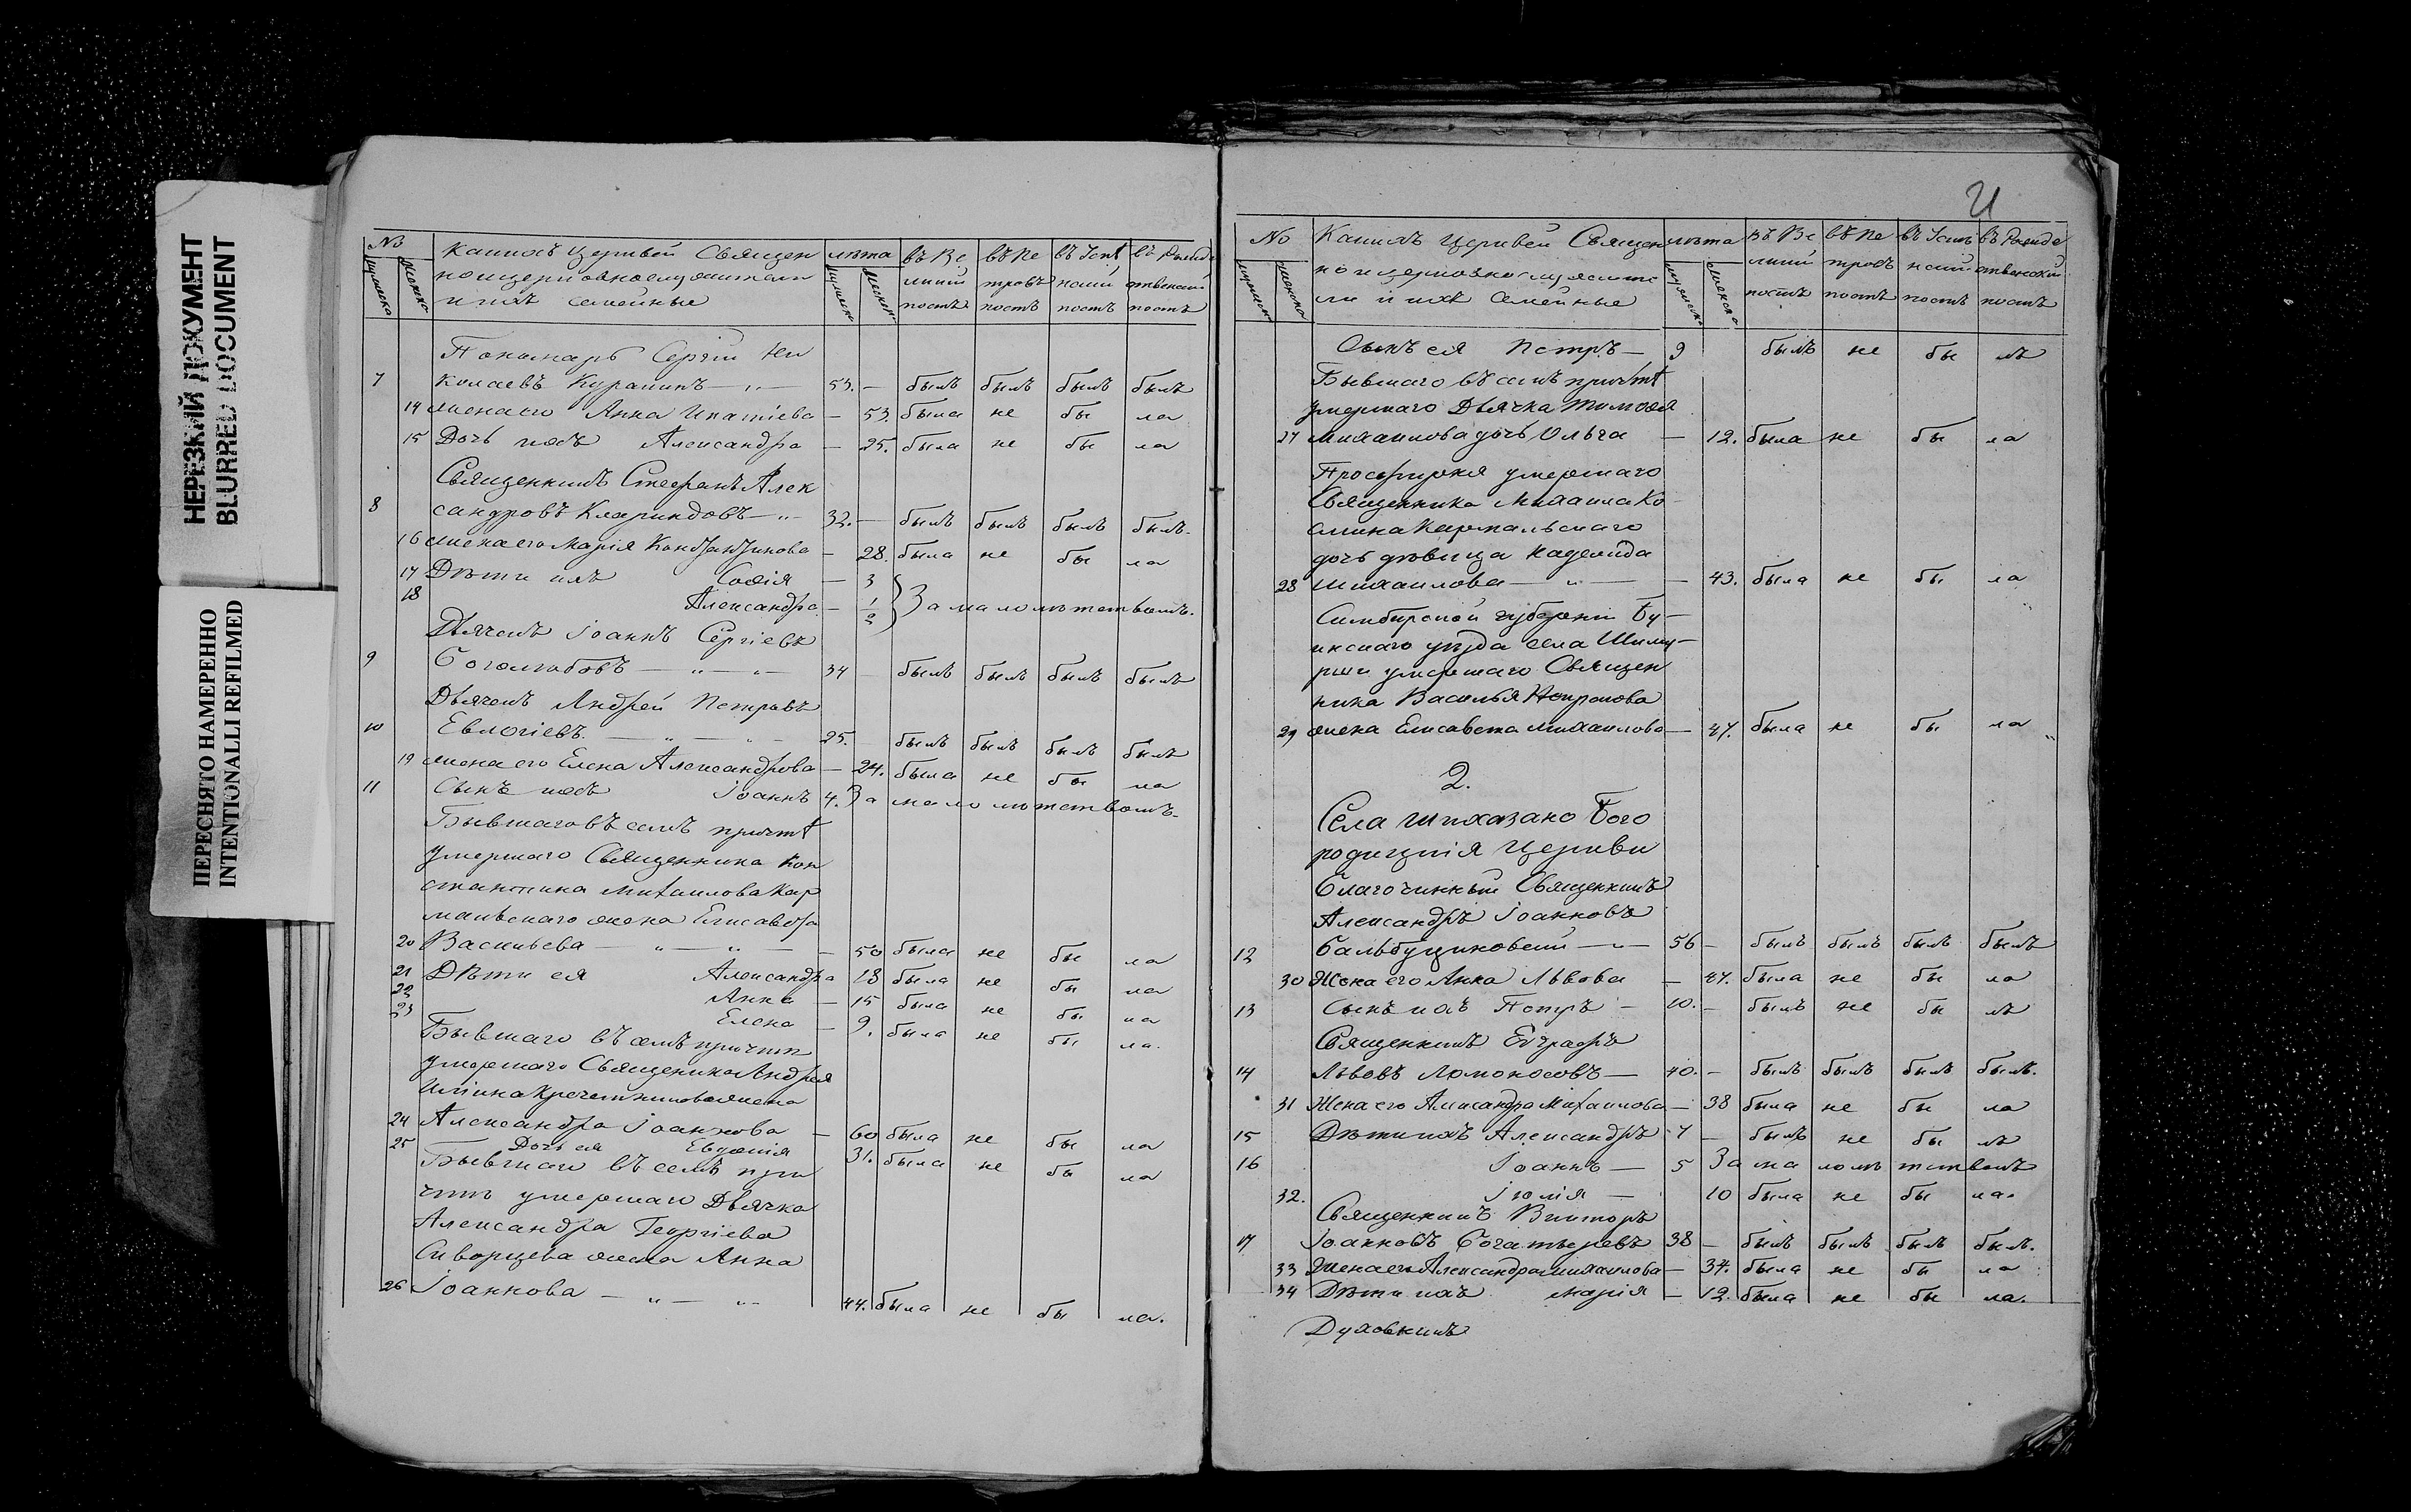 НЕРЕЗКИЙ ДОКУМЕНТ
BLURRED DOCUMENT
ПЕРЕСНЯТО НАМЕРЕННО
INTENTIONALLI REFILMED
№ Какихъ Церквей Священ лѣта въ Ве въ Пе въ Успе въ Рожде
мужеска женска ноцерковнослужители мужеска женска ликій тровъ нскій ственскій
и ихъ семейные постъ постъ постъ постъ
Пономарь Сергій Ни
7 колаевъ Курапинъ — 53. — былъ былъ былъ былъ
14 жена его Анна Ипатіева — 53. была не бы ла
15 Дочь ихъ Александра — 25. была не бы ла
Священникъ Стефанъ Алек
8 сандровъ Клариндовъ — 32. — былъ былъ былъ былъ.
16 жена его Марія Константинова — 28. была не бы ла
17 Дѣти ихъ Софія — 3
18 Александра — 1/2 За малолѣтствомъ.
Дьячекъ Іоаннъ Сергіевъ
9 Боголюбовъ — 34 — былъ былъ былъ былъ
Дьячекъ Андрей Петровъ
10 Евлогіевъ. — 25. былъ былъ былъ былъ
19 жена его Елена Александрова — 24. была не бы ла
11 Сынъ ихъ Іоаннъ 4. За малолѣтствомъ.
Бывшаго въ семъ причтѣ
умершаго Священника Кон
стантина Михаилова Кар
мальскаго жена Елисавета
20 Васильева — 50 была не бы ла
21 Дѣти ея Александра 18 была не бы ла
22 Анна — 15 была не бы ла
23 Елена — 9. была не бы ла.
Бывшаго въ семъ причтѣ
умершаго Священника Андрея
жена
24 Александра Іоаннова — 60 была не бы ла
25 Дочь ея Евдокія 31. была не бы ла
Бывшаго въ семъ при
чтѣ умершаго Дьячка
Александра Георгіева
Скворцева жена Анна
26 Іоаннова — 44. была не бы ла.
21
№ Какихъ Церквей Священ лѣта въ Ве въ Пе въ Успе въ Рожде
мужеска женска но и церковнослужите мужеска женска ликій тровъ нскій ственскій
ли и ихъ Семейные постъ постъ постъ постъ
Сынъ ея Петръ — 9 былъ не бы лъ
Бывшаго въ семъ причтѣ
умершаго Дьячка Тимофея
27 Михаилова дочь Ольга — 12. была не бы ла
Просфирня умершаго
Священника Михаила Ко
смина Кармальскаго
дочь дѣвица Надежда
28 Михаилова — 43. была не бы ла
Симбирской губерніи Бу-
инскаго уѣзда села Шиму-
рши умершаго Священ
ника Василья
29 жена Елисавета Михаилова — 47. была не бы ла
2.
Села Шихазано Бого
родицкія Церкви
Благочинный Священникъ
Александръ Іоанновъ
12 Бальбуциновскій — 56 — былъ былъ былъ былъ
30 Жена его Анна Львова — 47. была не бы ла
13 Сынъ ихъ Петръ — 10. — былъ не бы лъ
Священникъ Евграфъ
14 Львовъ Ломоносовъ — 40. — былъ былъ былъ былъ.
31 Жена его Александра Михаилова — 38 была не бы ла
15 Дѣти ихъ Александръ 7 — былъ не бы лъ
16 Іоаннъ — 5 За малолѣтствомъ
32. Іюлія — 10 была не бы ла.
Священникъ Викторъ
17 Іоанновъ Богатыревъ 38 — былъ былъ былъ былъ.
33 Жена его Александра Михаилова — 37. была не бы ла
34 Дѣти ихъ Марія — 12. была не бы ла.
Духовникъ